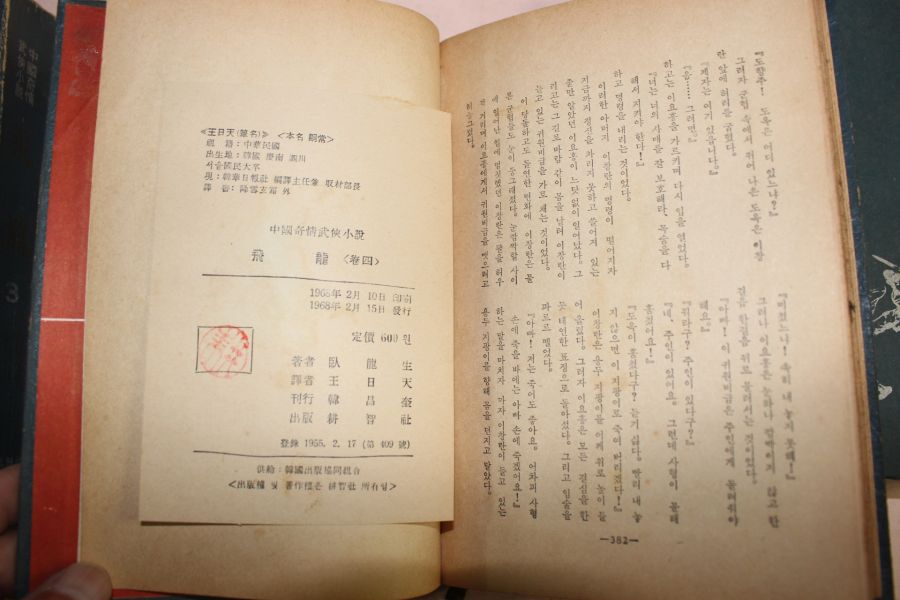 『도향주! 도옥은 어디 있느냐?』
그러자 군협 속에서 뛰어 나온 도옥은 이장
란 앞에 허리를 굽혔다.
『제자는 여기 있읍니다.』
『음…… 그러면.』
하고는 이요홍을 가르키며 다시 입을 열었다.
『너는 너의 사매를 잘 보호해라、 목숨을 다
해서 지키야 한다!』
하고 명령을 내리는 것이었다.
이러한 아버지 이장란의 명령이 떨어지자
지금까지 정신을 차리지 못하고 쓸어져 있는
줄만 알았던 이요홍이 느닷없이 일어났다. 그
리고는 그 길로 바람 같이 몸을 날려 이장란이
들고 있는 귀원비급을 가로 채는 것이었다.
이 당돌하고도 돌연한 변화에 이장란은 물
론 군협들도 눈이 둥그래졌다. 눈깜짝할 사이
에 일어난 일에 멈칫했던 이장란은 팔을 허우
적 거리며 이요홍에게서 귀원비급을 뺏으려고
허둥거렸다.
『미쳤느냐! 속히 내 놓지 못해!』
그러나 이요홍은 눈하나 깜짝이지 않고 한
걸음 한걸음 뒤로 물러서는 것이었다.
『아빠! 이 귀원비급은 주인에게 돌려줘야
해요.』
『뭐라구? 주인이 있다구?』
『네、 주인이 있어요. 그런데 사형이 몰래
훔쳤어요!』
『도옥이 훔쳤다구? 듣기 싫다. 빨리 내 놓
지 않으면 이 지팡이로 죽여 버리겠다!』
이장란은 용두 지팡이를 어깨 위로 높이 들
어 올렸다. 그러자 이요홍은 모든 결심을 한
듯 태연한 표정으로 돌아섰다. 그리고 입술을
파르르 떨었다.
『아빠! 저는 죽어도 좋아요. 어차피 사형
손에 죽을 바에는 아빠 손에 죽겠어요!』
하는 말을 마치자 마자 이장란이 들고 있는
용두 지팡이를 향해 몸을 던지고 말았다.
—382—
《王日天(筆名)》 <本名 嗣常>
國 籍：中華民國
出生地：韓國 慶南 泗川
서울國民大卒
現：韓華日報社 編譯主任兼 取材部長
譯 著：降雪玄霜 外
中國奇情武俠小說
飛 龍 〈卷四〉
1968年 2月 10日 印刷
1968年 2月 15日 發行
定價 600원
著者 臥 龍 生
譯者 王 日 天
刊行 韓 昌 奎
出版 耕 智 社
登錄 1955. 2. 17 (第 409 號)
供給：韓國出版協同組合
<出版權 및 著作權은 耕智社 所有임>
中國奇情
武俠小說
3